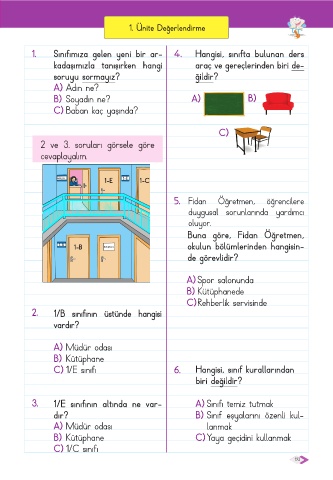 1. Ünite Değerlendirme
1. Sınıfımıza gelen yeni bir ar-
kadaşımızla tanışırken hangi
soruyu sormayız?
A) Adın ne?
B) Soyadın ne?
C) Baban kaç yaşında?
2 ve 3. soruları görsele göre
cevaplayalım.
1-E
1-C
1-B
2. 1/B sınıfının üstünde hangisi
vardır?
A) Müdür odası
B) Kütüphane
C) 1/E sınıfı
3. 1/E sınıfının altında ne var-
dır?
A) Müdür odası
B) Kütüphane
C) 1/C sınıfı
4. Hangisi, sınıfta bulunan ders
araç ve gereçlerinden biri de-
ğildir?
A)
B)
C)
5. Fidan Öğretmen, öğrencilere
duygusal sorunlarında yardımcı
oluyor.
Buna göre, Fidan Öğretmen,
okulun bölümlerinden hangisin-
de görevlidir?
A) Spor salonunda
B) Kütüphanede
C) Rehberlik servisinde
6. Hangisi, sınıf kurallarından
biri değildir?
A) Sınıfı temiz tutmak
B) Sınıf eşyalarını özenli kul-
lanmak
C) Yaya geçidini kullanmak